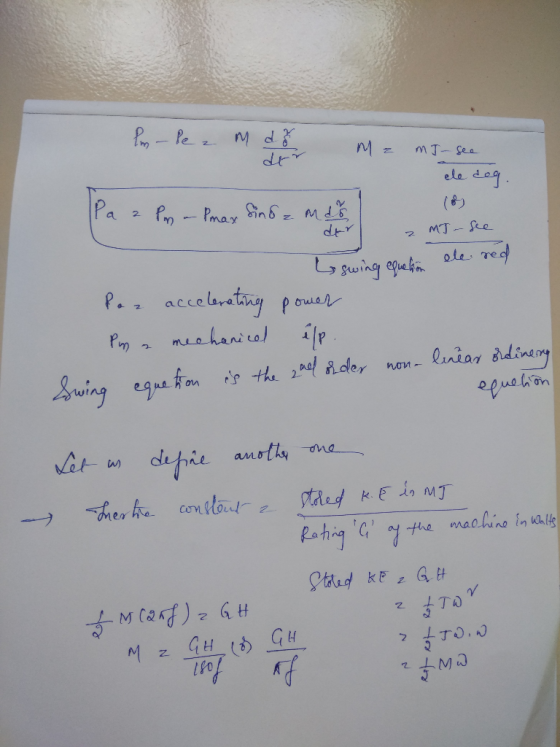 Pm - Pe = M d²δ/dt²    M = MJ-sec/ele deg.
(or)
Pa = Pm - Pmax Sinδ = M d²δ/dt²    = MJ-sec/ele. rad
↳ swing equation
Pa = accelerating power
Pm = mechanical i/p.
Swing equation is the 2nd order non-linear ordinary
equation
Let us define another one
→ Inertia constant = Stored K.E in MJ / Rating 'G' of the machine in watts
Stored KE = GH
= 1/2 Jω²
= 1/2 Jω.ω
= 1/2 Mω
1/2 M(2πf) = GH
M = GH/180f (or) GH/πf